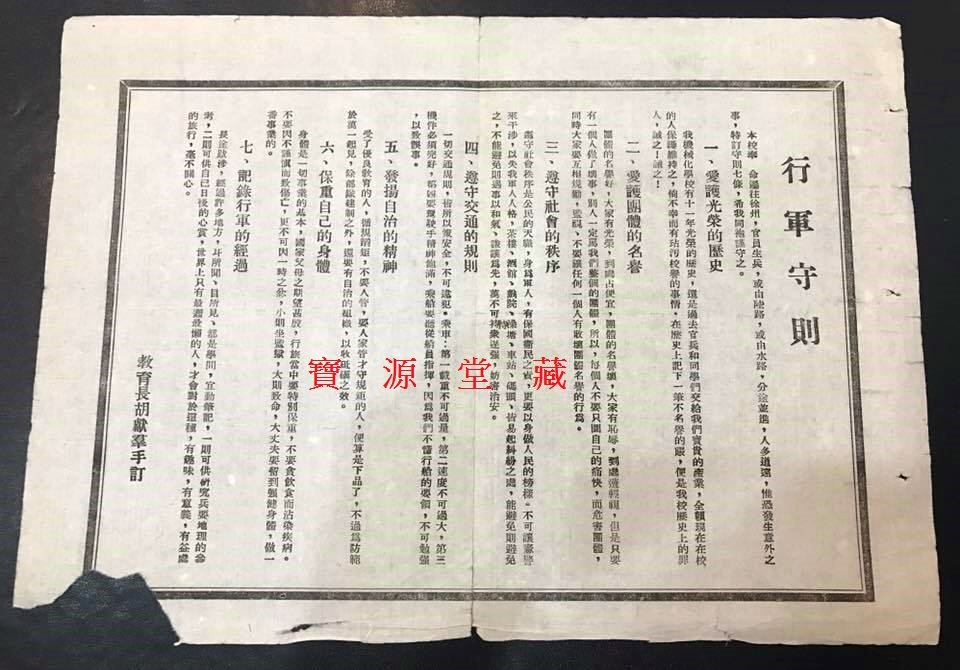 行軍守則
本校奉　命遷往徐州，官員生兵，或由陸路，或由水路，分途並進，人多道遠，惟恐發生意外之
事，特訂守則七條，希我同袍謹守之。
一、愛護光榮的歷史
我機械化學校有十一年光榮的歷史，這是過去官兵和同學們交給我們寶貴的產業，全賴現在在校
的人保護維持之，倘不幸而有玷污校譽的事情，在歷史上記下一筆不名譽的賬，便是我校歷史上的罪
人，誡之！誡之！
二、愛護團體的名譽
團體的名譽好，大家有光榮，到處占便宜，團體的名譽壞，大家有恥辱，到處遭輕視，但是只要
有一個人做了壞事，別人一定罵我們整個的團體，所以，每個人不要只圖自己的痛快，而危害團體，
同時大家要互相規勸，監視、不要讓任何一個人有敗壞團體名譽的行為。
三、遵守社會的秩序
遵守社會秩序是公民的天職，身為軍人，有保國衛民之責，更要以身做人民的榜樣。不可讓憲警
來干涉，以失我軍人人格，茶樓、酒館、戲院、澡塘、車站、碼頭、皆易起糾紛之處，能避免則避免
之，不能避免則遇事以和氣、謙讓為先，萬不可恃衆逞強，妨害治安。
四、遵守交通的規則
一切交通規則，皆所以策安全，不可違犯。乘車：第一載重不可過量，第二速度不可過大，第三
機件必須完好，第四要駕駛手精神飽滿，乘船要聽從船員指揮，因為我們不懂行船的要領，不可勉強
，以致誤事。
五、發揚自治的精神
受了優良教育的人，循規蹈矩，不要人管，要人家管才守規矩的人，便算是下品了，不過為防範
於萬一起見，除部隊建制之外，還要有自治的組織，以收砥礪之效。
六、保重自己的身體
身體是一切事業的基本，國家父母之期望甚殷，行旅當中要特別保重，不要貪飲食而沾染疾病。
不要因不謹慎而致傷亡，更不可因一時之忿，小則坐監獄，大則致命，大丈夫要留到強健身體，做一
番事業的。
七、記錄行軍的經過
長途跋涉，經過許多地方，耳所聞、目所見、都是學問，宜勤筆記，一則可供研究兵要地理的參
考，二則可供自己日後的心賞，世界上只有最遲最懶的人，才會對於這種，有趣味，有意義，有益處
的旅行，毫不關心。
教育長胡獻羣手訂
寶源堂藏